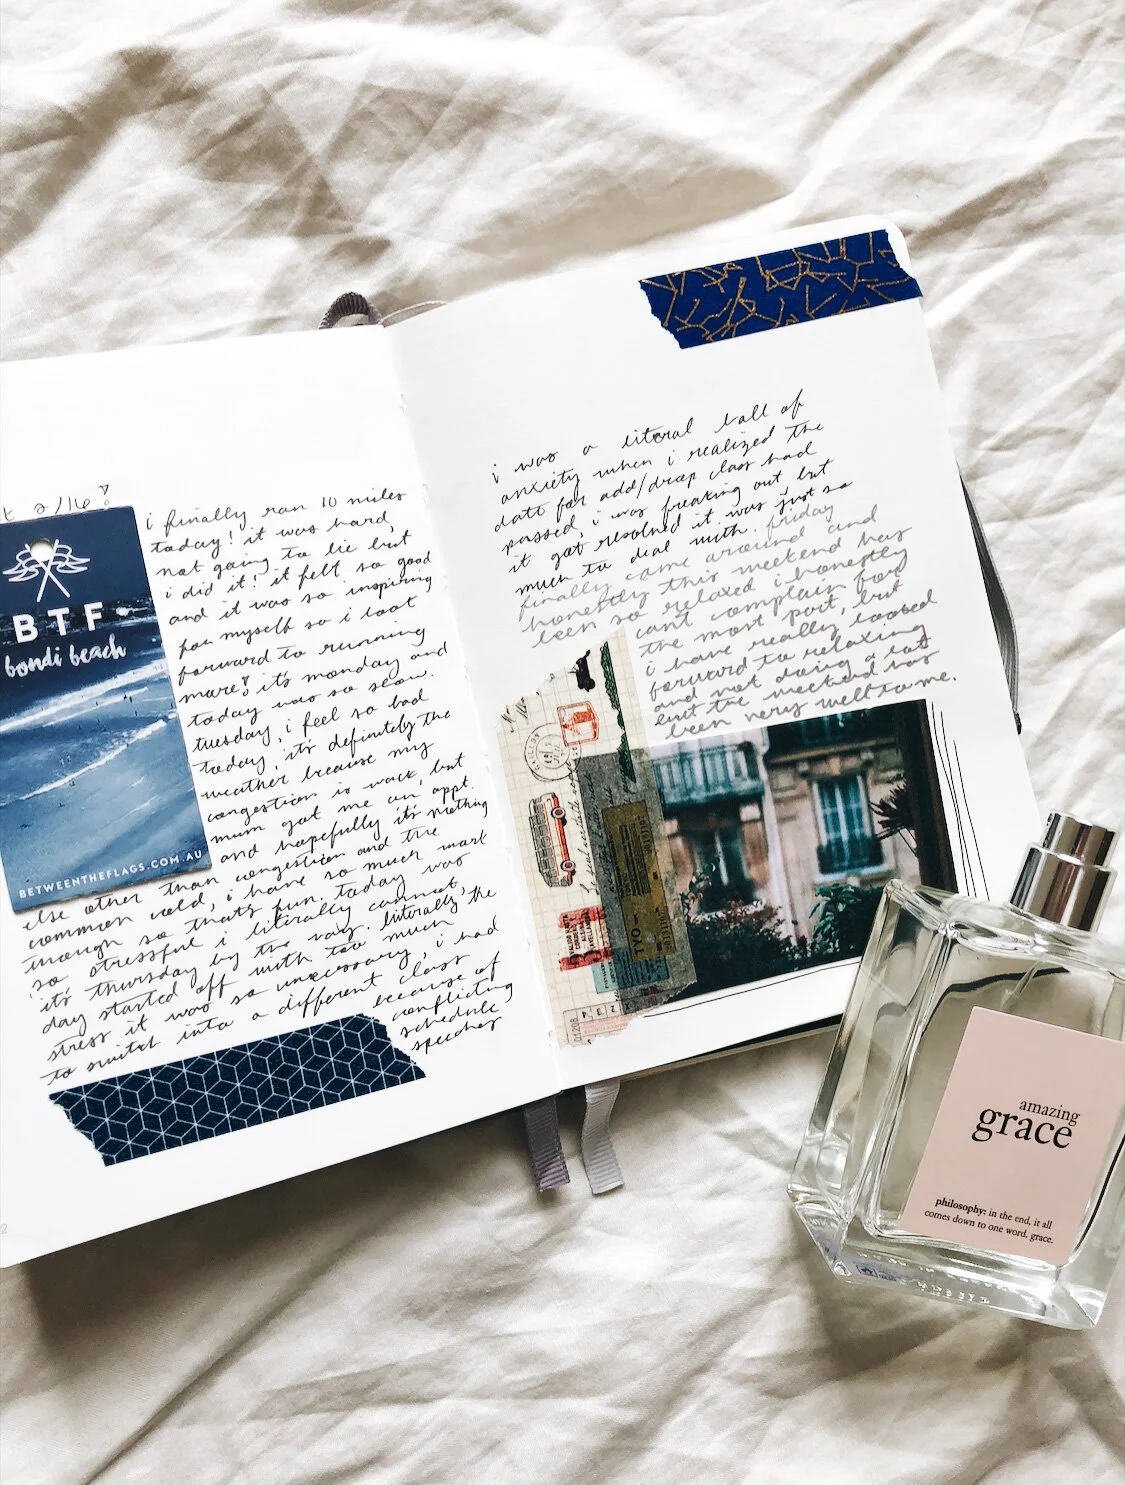 2/16!
i finally ran 10 miles
today! it was hard,
not going to lie but
i did it! it felt so good
and it was so inspiring
for myself so i look
forward to running
more! it's monday and
today was so slow.
tuesday, i feel so bad
today, it's definitely the
weather because my
congestion is wack but
mum got me an appt.
and hopefully it's nothing
else other than congestion and the
common cold, i have so much work
though so that's fun. today was
so stressful i literally cannot,
it's thursday by the way. literally the
day started off with too much
stress it was so unecessary, i had
to switch into a different class
because of
conflicting
schedule
BTF
bondi beach
BETWEENTHEFLAGS.COM.AU
2
i was a literal ball of
anxiety when i realized the
date for add/drop class had
passed, i was freaking out but
it got resolved it was just so
much to deal with. friday
finally came around and
honestly this weekend has
been so relaxed i honestly
can't complain for
the most part, but
i have really looked
forward to relaxing
and not doing a lot
but the weekend has
been very well to me.
TYO
amazing
grace
philosophy: in the end, it all
comes down to one word. grace.